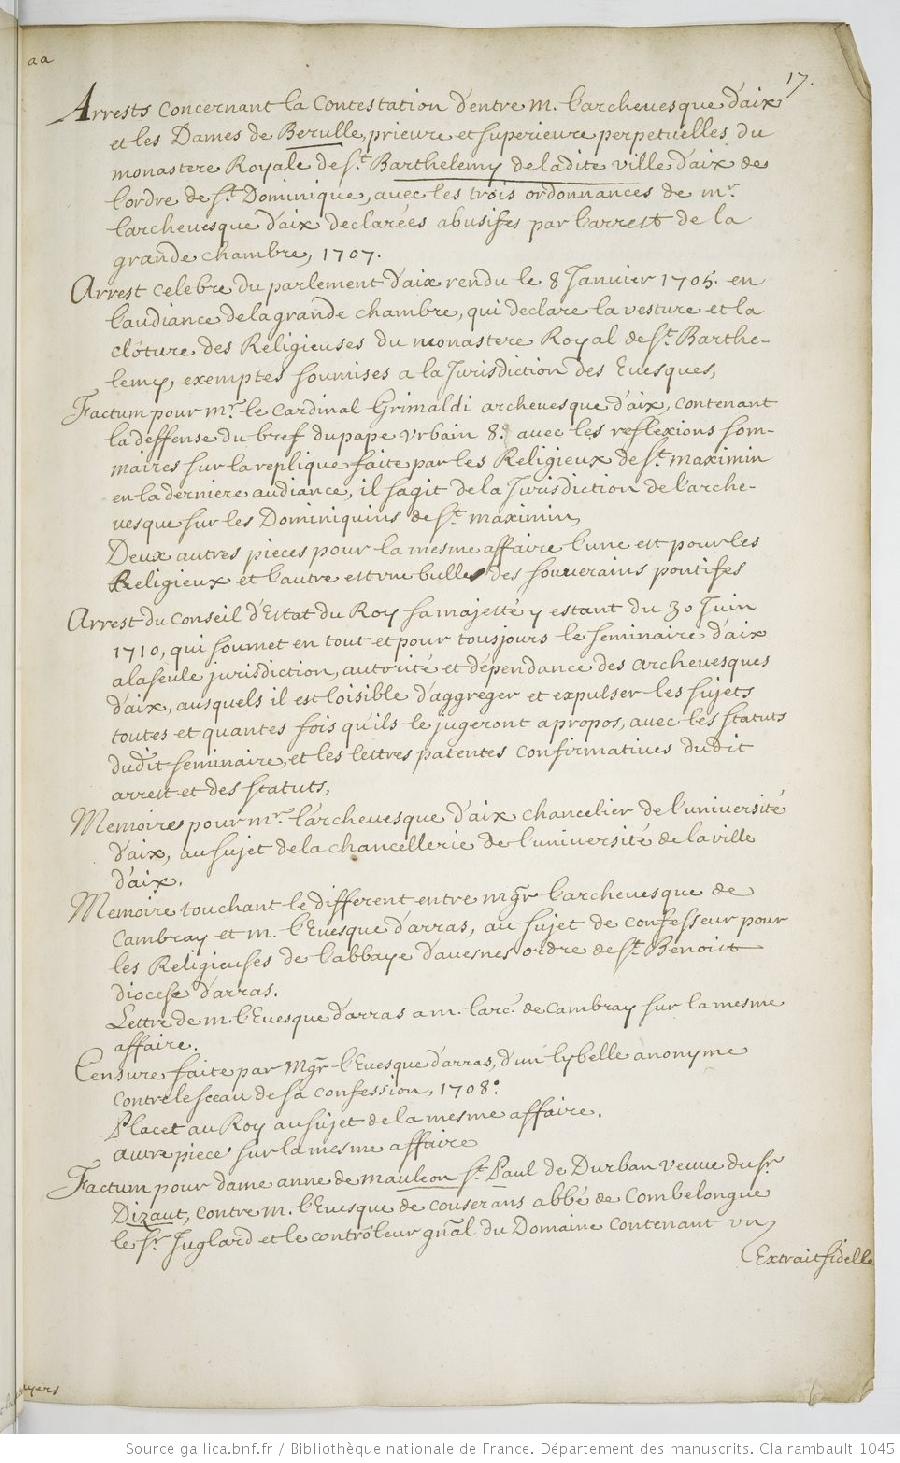 aa
17.
Arrests concernant la Contestation d'entre m. l'archevesque d'aix
et les Dames de Berulle, prieure et superieure perpetuelles du
monastere Royale de St. Barthelemy de ladite ville d'aix de
l'ordre de St. Dominique, avec les trois ordonnances de mr.
l'archevesque d'aix declarées abusifes par l'arrest de la
grande chambre, 1707.
Arrest celebre du parlement d'aix rendu le 8 Janvier 1705. en
l'audiance de la grande chambre, qui declare la vesture et la
clôture des Religieuses du monastere Royal de St. Barthe-
lemy, exemptes soumises a la Jurisdiction des Evesques,
Factum pour mr. le Cardinal Grimaldi archevesque d'aix, contenant
la deffense du bref du pape Urbain 8. avec les reflexions som-
maires sur la replique faite par les Religieux de St. maximin
en la derniere audiance, il s'agit de la Jurisdiction de l'arche-
vesque sur les Dominiquins de St. maximin,
Deux autres pieces pour la mesme affaire l'une est pour les
Religieux et l'autre est une bulle des souverains pontifes
Arrest du Conseil d'Estat du Roy sa majesté y estant du 30 Juin
1710, qui soumet en tout et pour tousjours le seminaire d'aix
a la seule jurisdiction, autorité et dépendance des archevesques
d'aix, ausquels il est loisible d'aggréger et expulser les sujets
toutes et quantes fois qu'ils le jugeront a propos, avec les statuts
dudit seminaire, et les lettres patentes confirmatives dudit
arrest et des statuts,
Memoires pour mr. l'archevesque d'aix chancelier de l'université
d'aix, au sujet de la chancellerie de l'université de la ville
d'aix.
Memoire touchant le different entre mgr l'archevesque de
Cambray et m. l'Evesque d'arras, au sujet de confesseur pour
les Religieuses de l'abbaye d'avesnes ordre de St. Benoist
diocese d'arras.
Lettre de m. l'Evesque d'arras a m. l'arc. de Cambray sur la mesme
affaire.
Censure faite par Mgr l'Evesque d'arras, d'un lybelle anonyme
contre le sceau de la confession, 1708.
Placet au Roy au sujet de la mesme affaire.
autre piece sur la mesme affaire
Factum pour dame anne de mauleon St. Paul de Durban veuve du sr.
Dizaut, contre m. l'Evesque de couserans abbé de Combelongue
le sr. Juglard et le contrôleur gnal du Domaine contenant un
Extrait fidelle
Source gallica.bnf.fr / Bibliothèque nationale de France. Département des manuscrits. Clairambault 1045